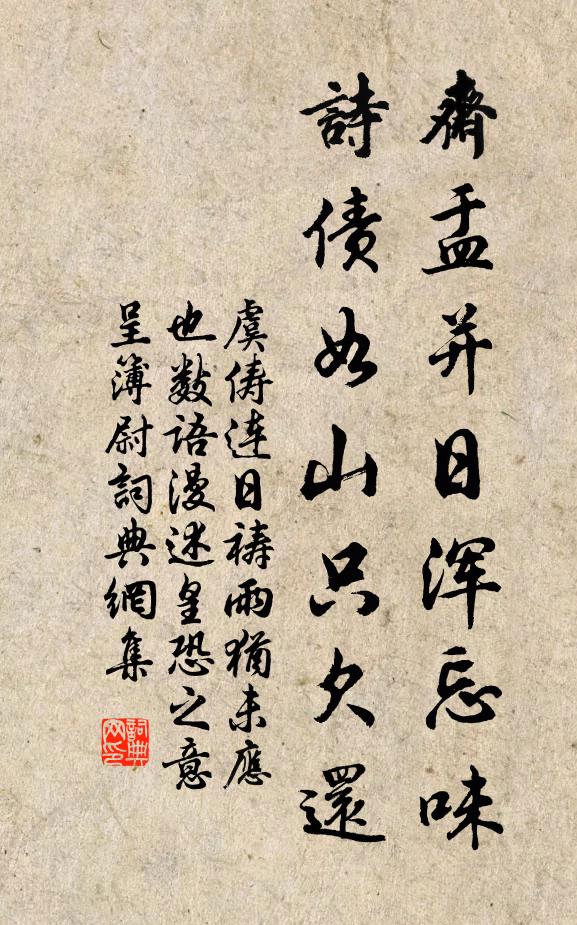 齋盂并日渾忘味
詩債如山只欠還
虞儔連日禱雨猶未應
也數語漫述皇恐之意
呈簿尉詞典網集
詞典
网印